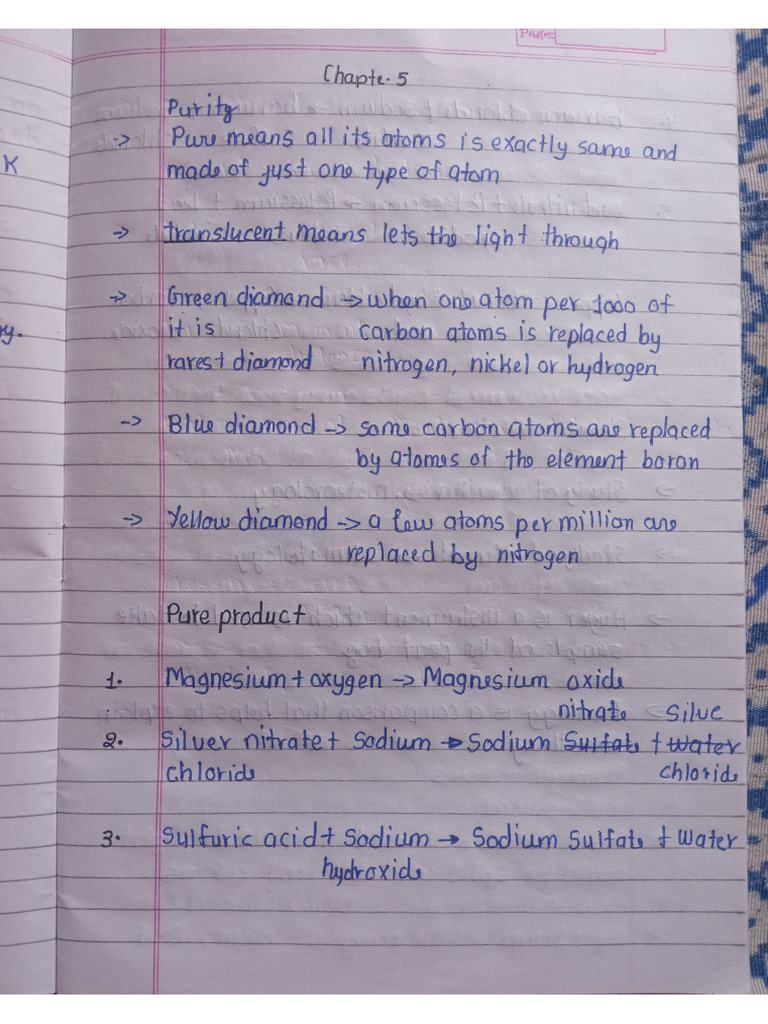 Page:
Chapte. 5
Purity
-> Pure means all its atoms is exactly same and
made of just one type of atom
-> translucent means lets the light through
-> Green diamond -> when one atom per 1000 of
it is carbon atoms is replaced by
rarest diamond nitrogen, nickel or hydrogen
-> Blue diamond -> some carbon atoms are replaced
by atomes of the element boron
-> Yellow diamond -> a few atoms per million are
replaced by nitrogen
Pure product
1. Magnesium + oxygen -> Magnesium oxide
nitrate Silve
2. Silver nitrate + Sodium -> Sodium Sulfate + water
chloride chloride
3. Sulfuric acid + Sodium -> Sodium Sulfate + water
hydroxide
K
y.